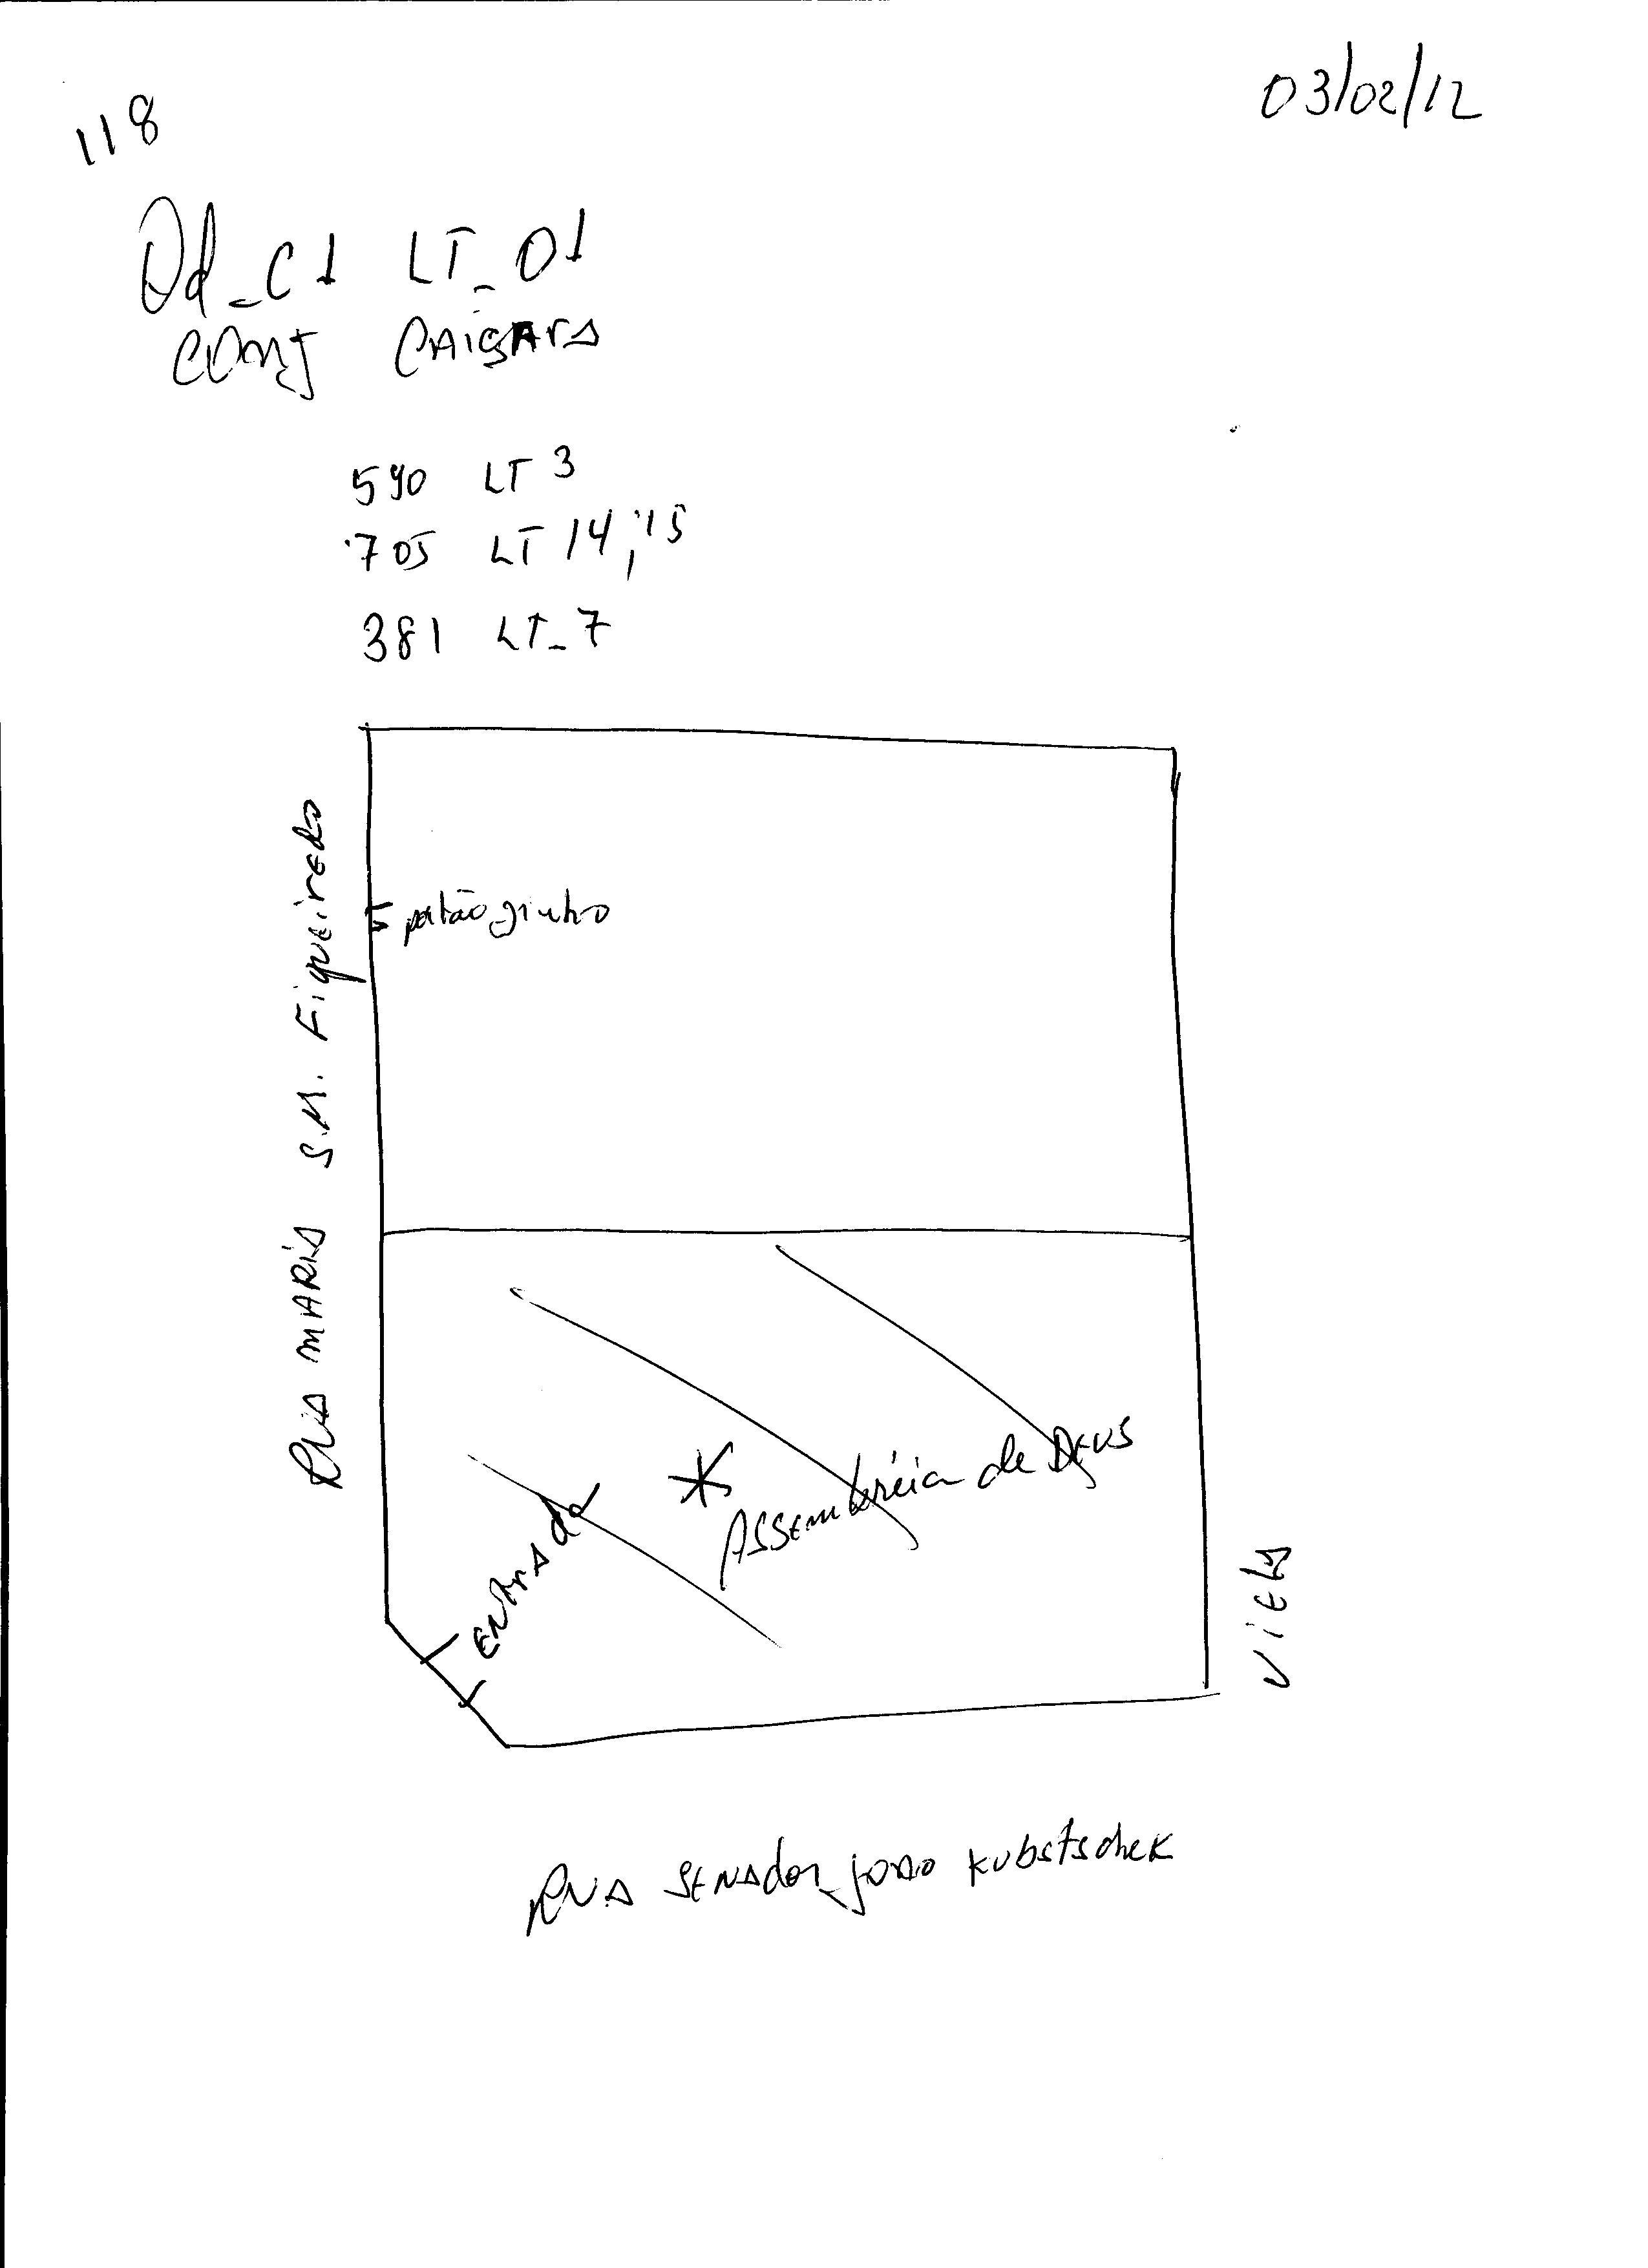 118
03/02/12
Qd_C1 LT_01
CONJ CAIÇARA
590 LT 3
705 LT 14, 15
381 LT_7
RUA MARIA S.M. Figueiredo
portão ginho
Entrada
Assembléia de Deus
Viela
RUA SENAdor João Kubstschek